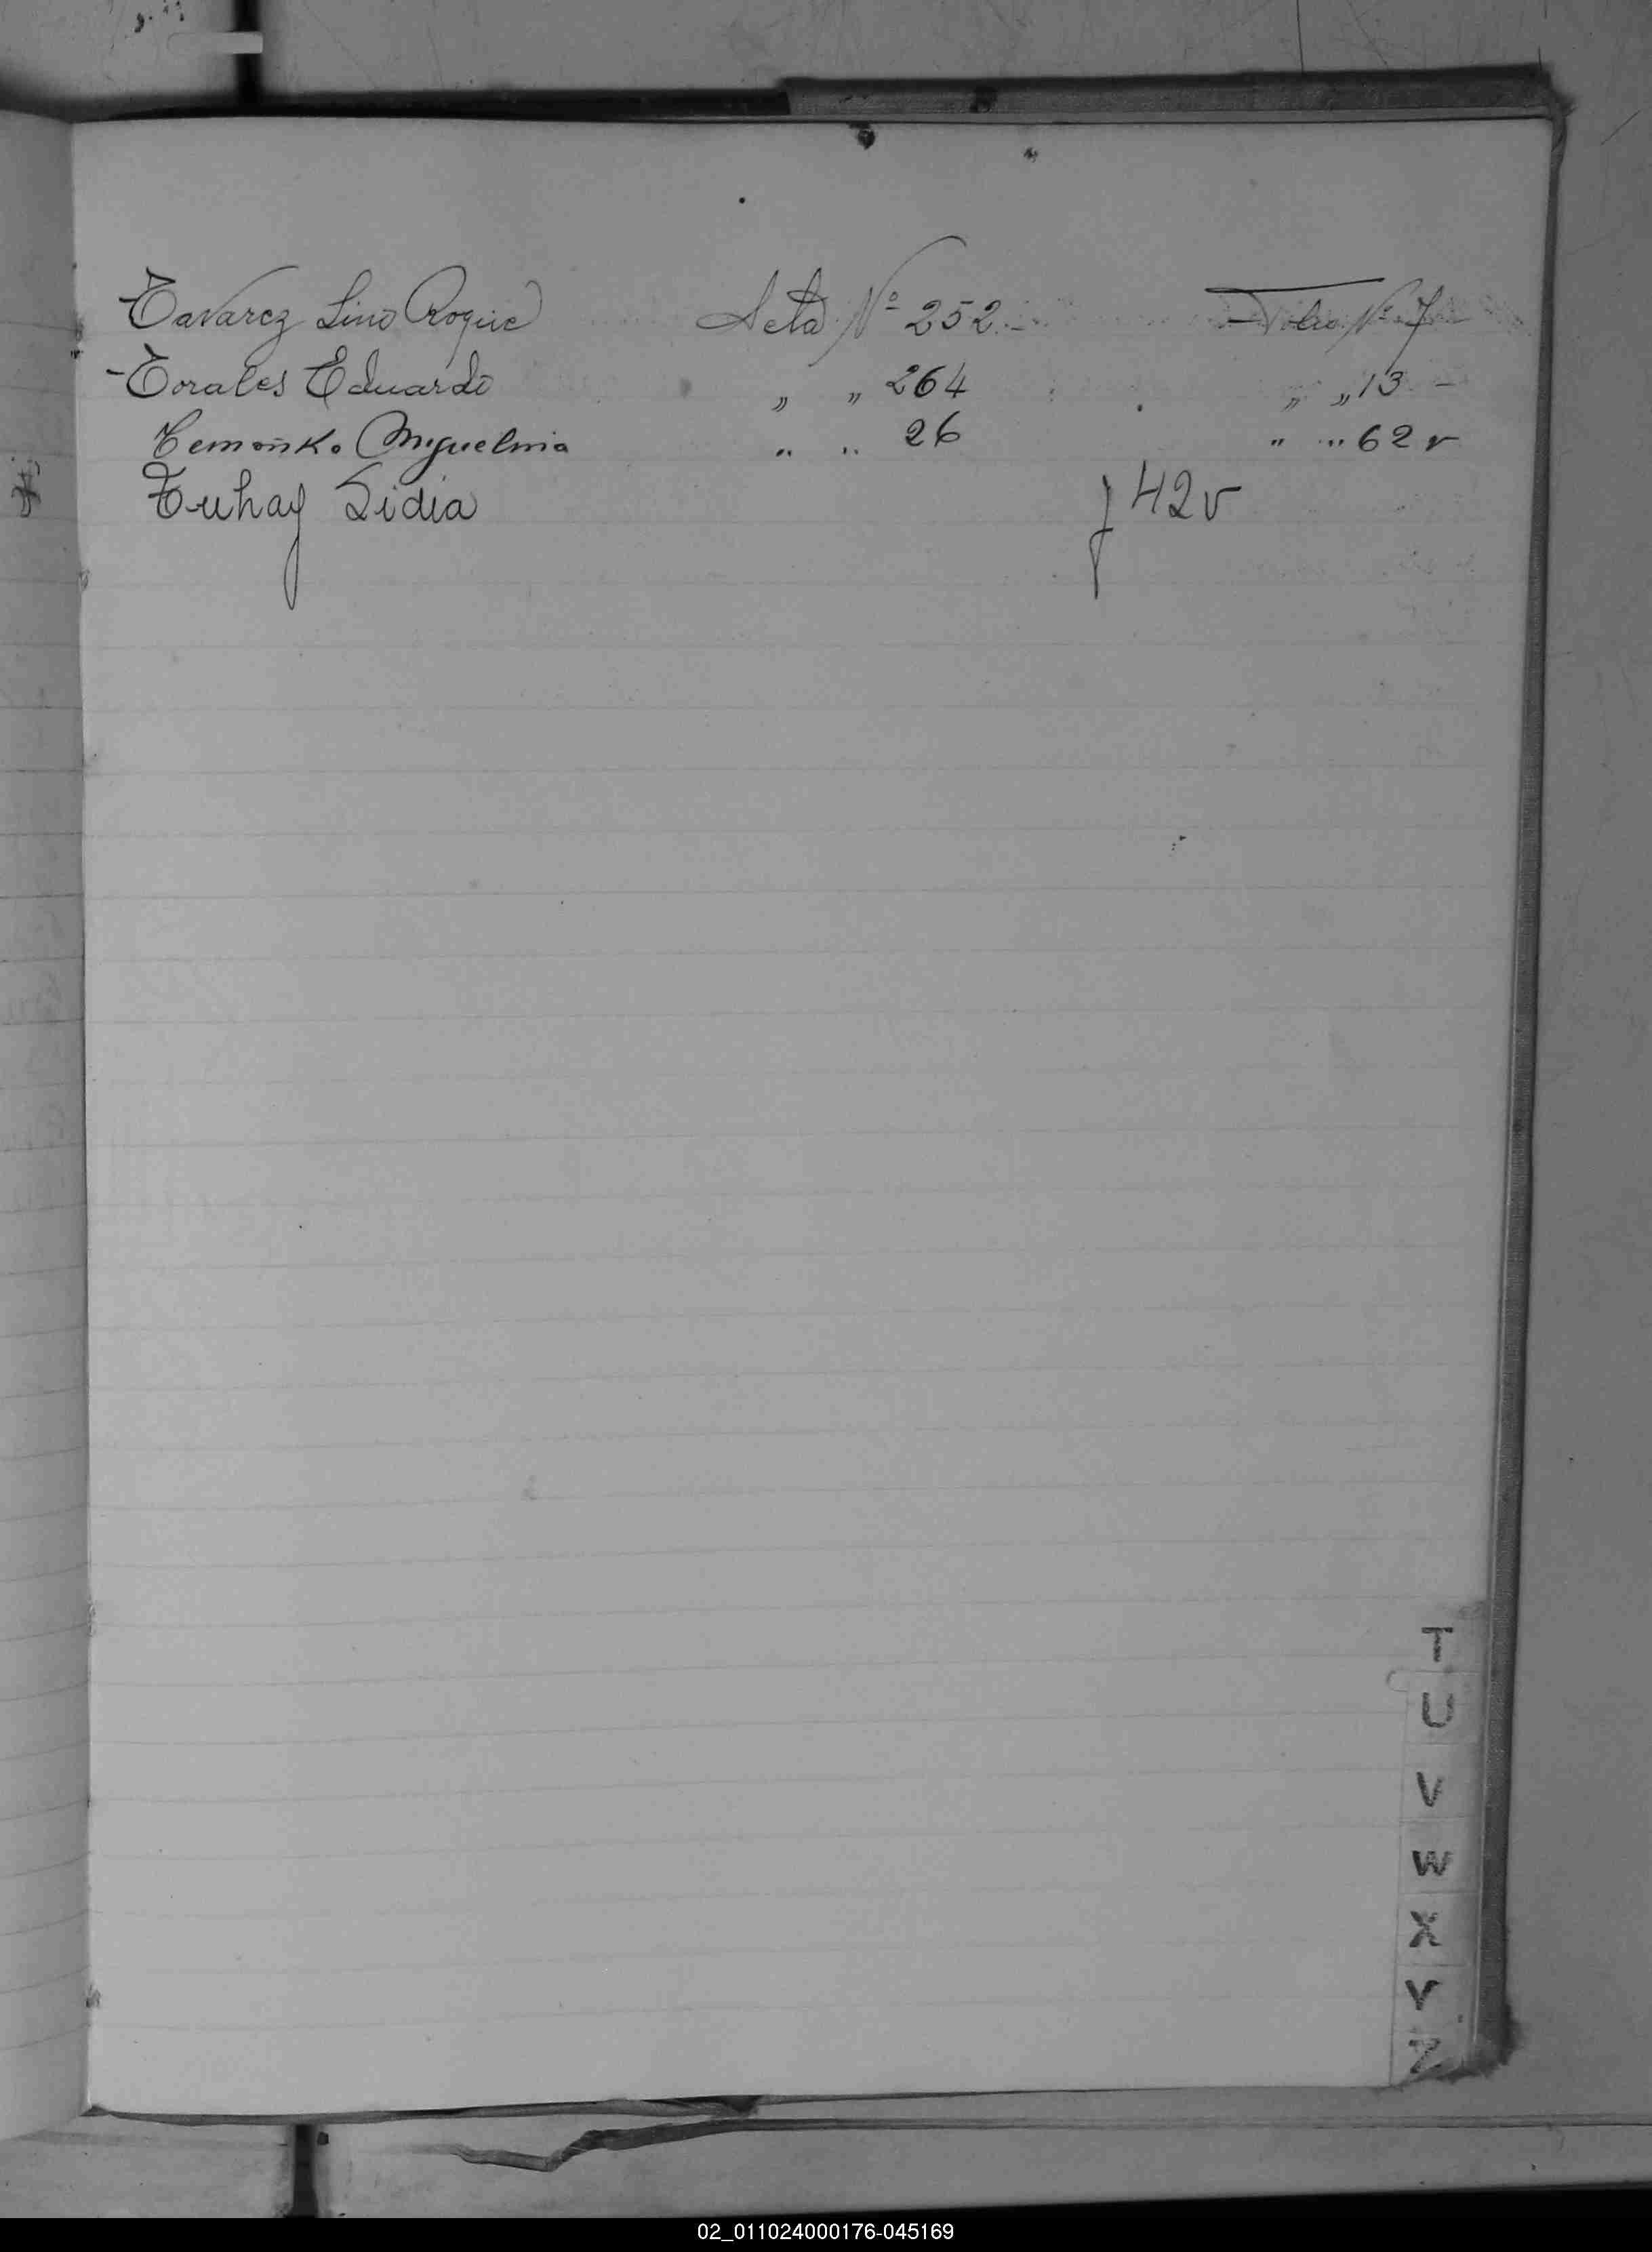 Tavarez Lino Roque Acta Nº 252.- Folio Nº 7
-Torales Eduardo " " 264 " " 13 -
Temoñko Miguelina " " 26 " " 62 v
Tuhay Lidia f 42v
T
U
V
W
X
Y
Z
02_011024000176-045169